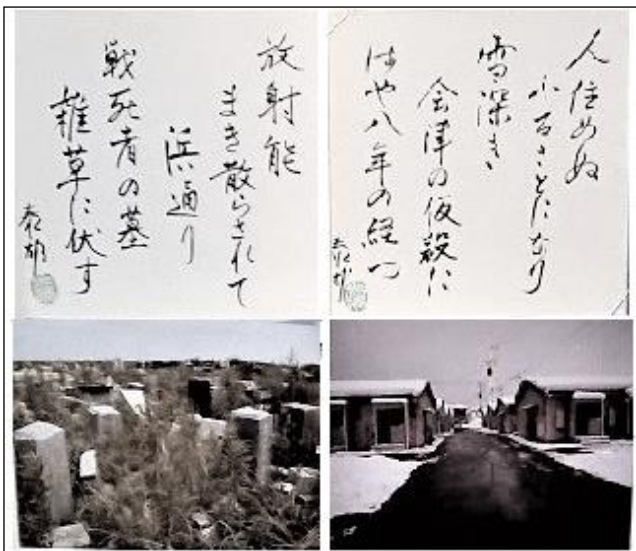 人住めぬ
ふるさとになり
雪深き
会津の仮設に
はや八年の経つ
泰雄
放射能
まき散らされて
浜通り
戦死者の墓
雑草に伏す
泰雄